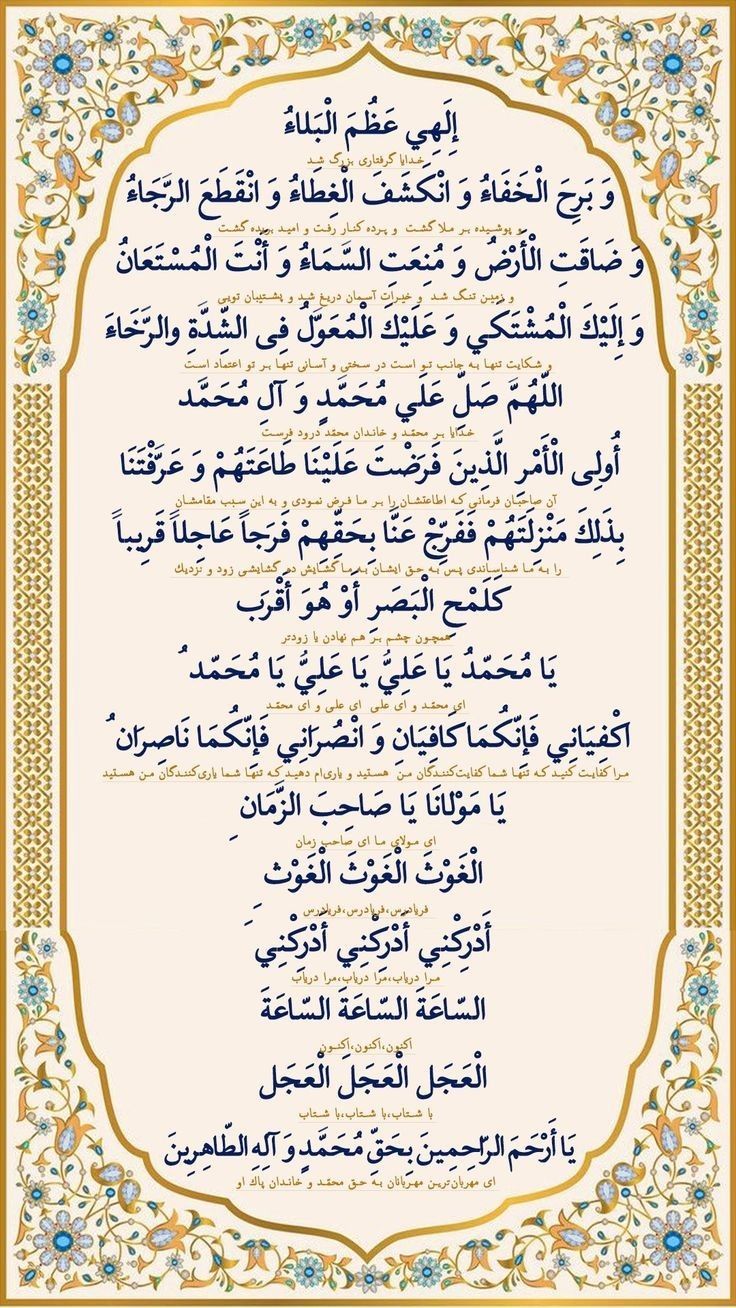 إِلَهِي عَظُمَ الْبَلاءُ
خدایا گرفتاری بزرگ شد
وَ بَرِحَ الْخَفَاءُ وَ انْكَشَفَ الْغِطَاءُ وَ انْقَطَعَ الرَّجَاءُ
و پوشیده بر ملا گشت و پرده کنار رفت و امید بریده گشت
وَ ضَاقَتِ الْأَرْضُ وَ مُنِعَتِ السَّمَاءُ وَ أَنْتَ الْمُسْتَعَانُ
و زمین تنگ شد و خیرات آسمان دریغ شد و پشتیبان تویی
وَ إِلَيْكَ الْمُشْتَكَي وَ عَلَيْكَ الْمُعَوَّلُ فِی الشِّدَّةِ والرَّخَاءَ
و شکایت تنها به جانب تو است در سختی و آسانی تنها بر تو اعتماد است
اللَّهُمَّ صَلِّ عَلَي مُحَمَّدٍ وَ آلِ مُحَمَّد
خدایا بر محمّد و خاندان محمّد درود فرست
أُولِی الْأَمْرِ الَّذِينَ فَرَضْتَ عَلَيْنَا طَاعَتَهُمْ وَ عَرَّفْتَنَا
آن صاحبان فرمانی که اطاعتشان را بر ما فرض نمودی و به این سبب مقامشان
بِذَلِكَ مَنْزِلَتَهُمْ فَفَرِّجْ عَنَّا بِحَقِّهِمْ فَرَجاً عَاجِلاً قَرِيباً
را به ما شناساندی پس به حق ایشان به ما گشایش ده گشایشی زود و نزدیك
كَلَمْحِ الْبَصَرِ أَوْ هُوَ أَقْرَب
همچون چشم بر هم نهادن یا زودتر
يَا مُحَمّدُ يَا عَلِيُّ يَا عَلِيُّ يَا مُحَمّد ُ
ای محمّد و ای علی ای علی و ای محمّد
اكْفِيَانِي فَإِنّكُمَا كَافِيَانِ وَ انْصُرَانِي فَإِنّكُمَا نَاصِرَان ُ
مرا کفایت کنید که تنها شما کفایت‌کنندگان من هستید و یاری‌ام دهید که تنها شما یاری‌کنندگان من هستید
يَا مَوْلانَا يَا صَاحِبَ الزَّمَان ِ
ای مولای ما ای صاحب زمان
الْغَوْثَ الْغَوْثَ الْغَوْث َ
فریادرس،فریادرس،فریادرس
أَدْرِكْنِي أَدْرِكْنِي أَدْرِكْنِي
مرا دریاب،مرا دریاب،مرا دریاب
السّاعَةَ السّاعَةَ السّاعَةَ
اکنون،اکنون،اکنون
الْعَجَل الْعَجَلَ الْعَجَل
با شتاب،با شتاب،با شتاب
يَا أَرْحَمَ الرّاحِمِينَ بِحَقِّ مُحَمَّدٍ وَ آلِهِ الطّاهِرِينَ
ای مهربان‌ترین مهربانان به حق محمّد و خاندان پاك او